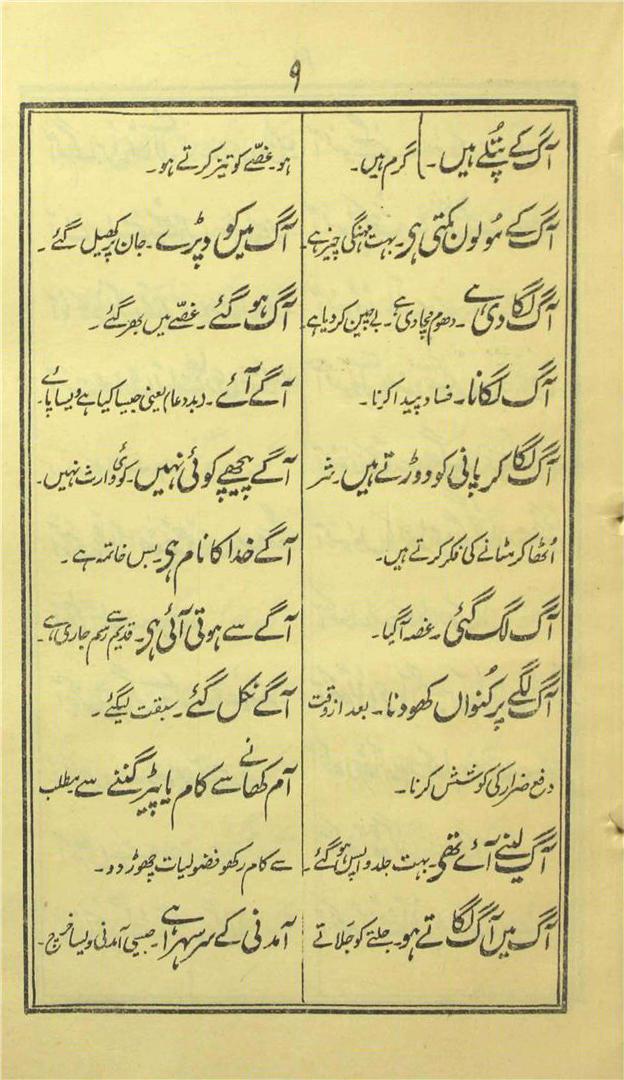 ۹
آگ کے پتلے ہیں۔ گرم ہیں۔
آگ کے مولوں بکتی ہی۔ بہت مہنگی چیز ہے۔
آگ لگا دی ہے۔ دھوم مچا دی ہے۔ بے چین کر دیا ہے۔
آگ لگانا۔ فساد پیدا کرنا۔
آگ لگا کر پانی کو دوڑتے ہیں۔ شر
اُٹھا کر مٹانے کی فکر کرتے ہیں۔
آگ لگ گئی۔ غصہ آگیا۔
آگ لگے پر کنواں کھودنا۔ بعد از وقت
دفع ضرار کی کوشش کرنا۔
آگ لینے آئے تھے۔ بہت جلد واپس ہو گئے۔
آگ میں آگ لگاتے ہو۔ جلتے کو جَلاتے
ہو۔ غصّے کو تیز کرتے ہو۔
آگ میں کود پڑے۔ جان پر کھیل گئے۔
آگ ہو گئے۔ غصّے میں بھر گئے۔
آگے آئے۔ (بددعا) یعنی جیسا کیا ہے ویسا پائے۔
آگے پیچھے کوئی نہیں۔ کوئی وارث نہیں۔
آگے خدا کا نام ہی۔ بس خاتمہ ہے۔
آگے سے ہوتی آئی ہی۔ قدیم سے رسم جاری ہے۔
آگے نکل گئے۔ سبقت لیگئے۔
آم کھانے سے کام یا پیڑ گننے سے۔ مطلب
سے کام رکھو فضولیات چھوڑ دو۔
آمدنی کے سر سہرا ہے۔ جیسی آمدنی ویسا خرچ۔